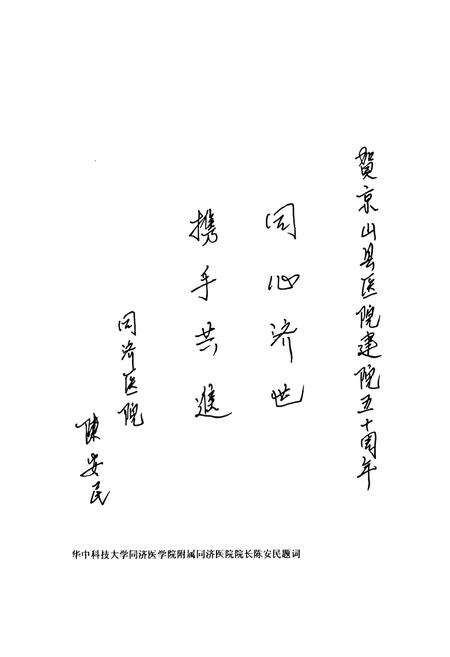 賀京山县医院建院五十周年
同心济世
携手共進
同济医院
陳安民
华中科技大学同济医学院附属同济医院院长陈安民题词